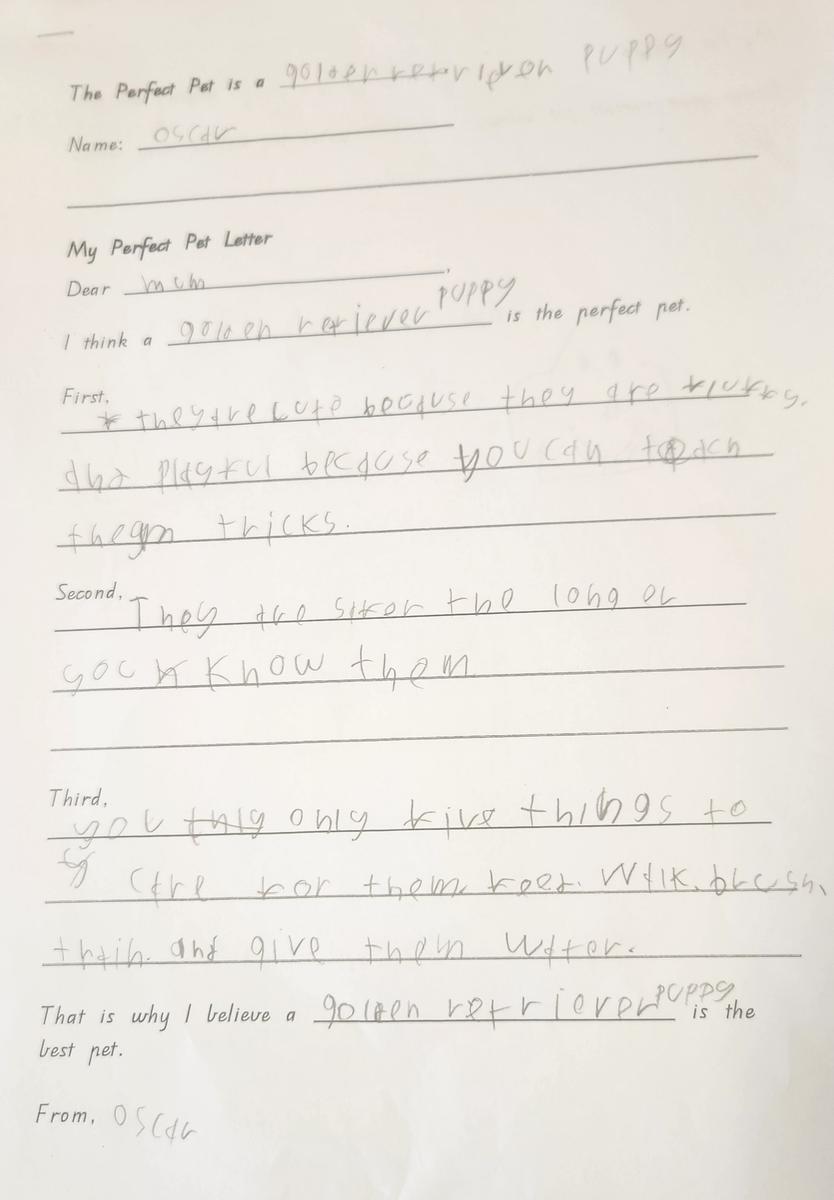 The Perfect Pet is a golden retrievon puppy
Name: oscar
My Perfect Pet Letter
Dear mum,
I think a golden retriever puppy is the perfect pet.
First, they are cute because they are fluffy.
and playful because you can teach
them tricks.
Second, They are softer the long er
you know them
Third, you only five things to
care for them feed. walk. brush.
train. and give them water.
That is why I believe a golden retriever puppy is the
best pet.
From, oscar